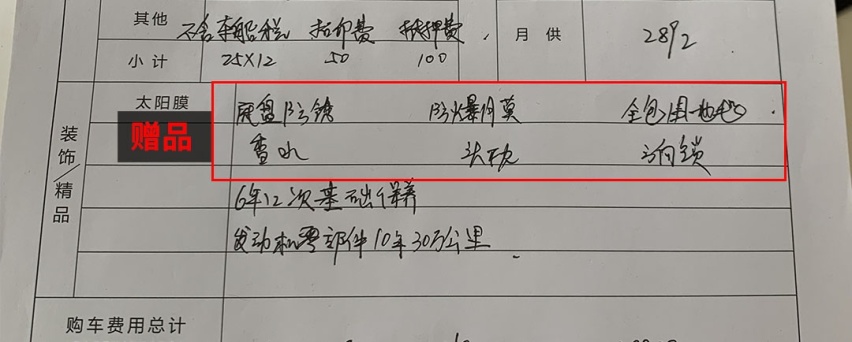 其他 不含车船税 拓印费 抵押费, 月供 2892
小计 25×12 50 100
太阳膜 底盘防锈 防爆膜 全包围地毯
赠品 香水 头枕 方向锁
装饰/精品
6年12次基础保养
发动机零部件10年30万公里.
购车费用总计